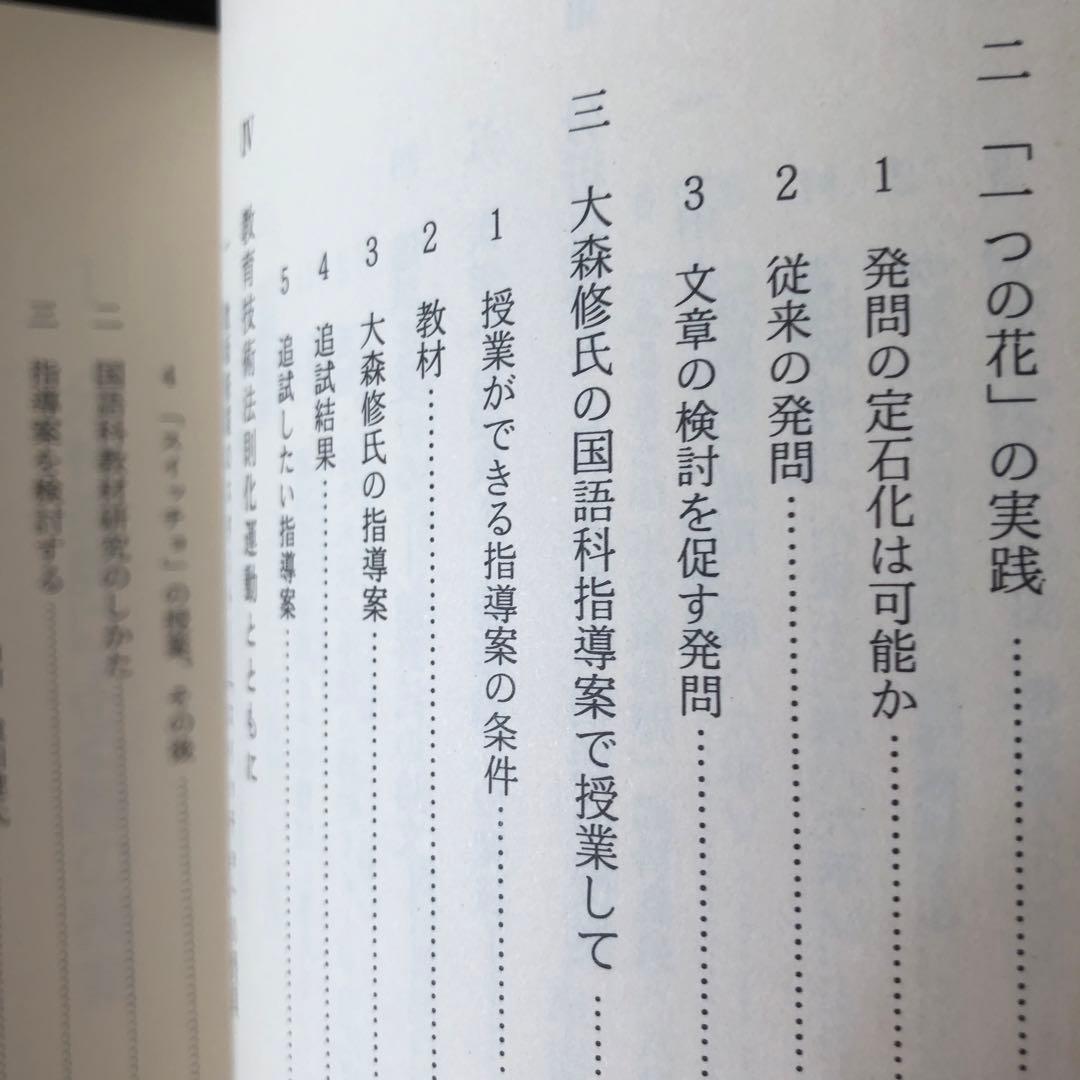 二 「一つの花」の実践……………
1 発問の定石化は可能か……………
2 従来の発問……………
3 文章の検討を促す発問……………
三 大森修氏の国語科指導案で授業して……
1 授業ができる指導案の条件……………
2 教材……………
3 大森修氏の指導案……………
4 追試結果……………
5 追試したい指導案……………
Ⅳ 教育技術法則化運動とともに
4 「スイッチョ」の授業、その後……………
二 国語科教材研究のしかた……………
三 指導案を検討する……………